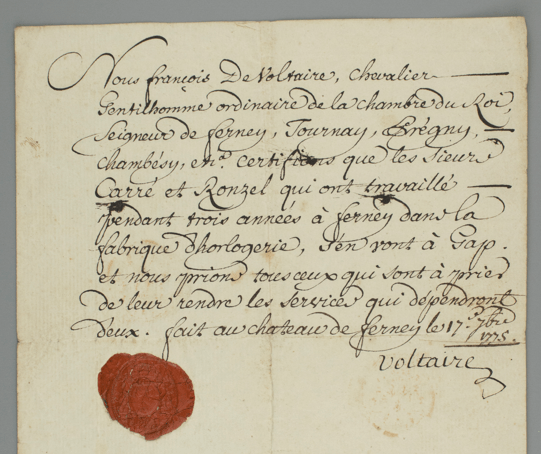 Nous françois De Voltaire, chevalier
Gentilhomme ordinaire de la chambre du Roi,
seigneur de ferney, Tournay, Prégny,
chambésy, en.ᵃ certifions que les Sieurs
Carré et Ronzel qui ont travaillé
pendant trois années à ferney dans la
fabrique d'horlogerie, s'en vont à Gap.
et nous prions tous ceux qui sont à prier
de leur rendre les services qui dépendront
d'eux. fait au chateau de ferney le 17.ᵉ 7bre
1775.
voltaire